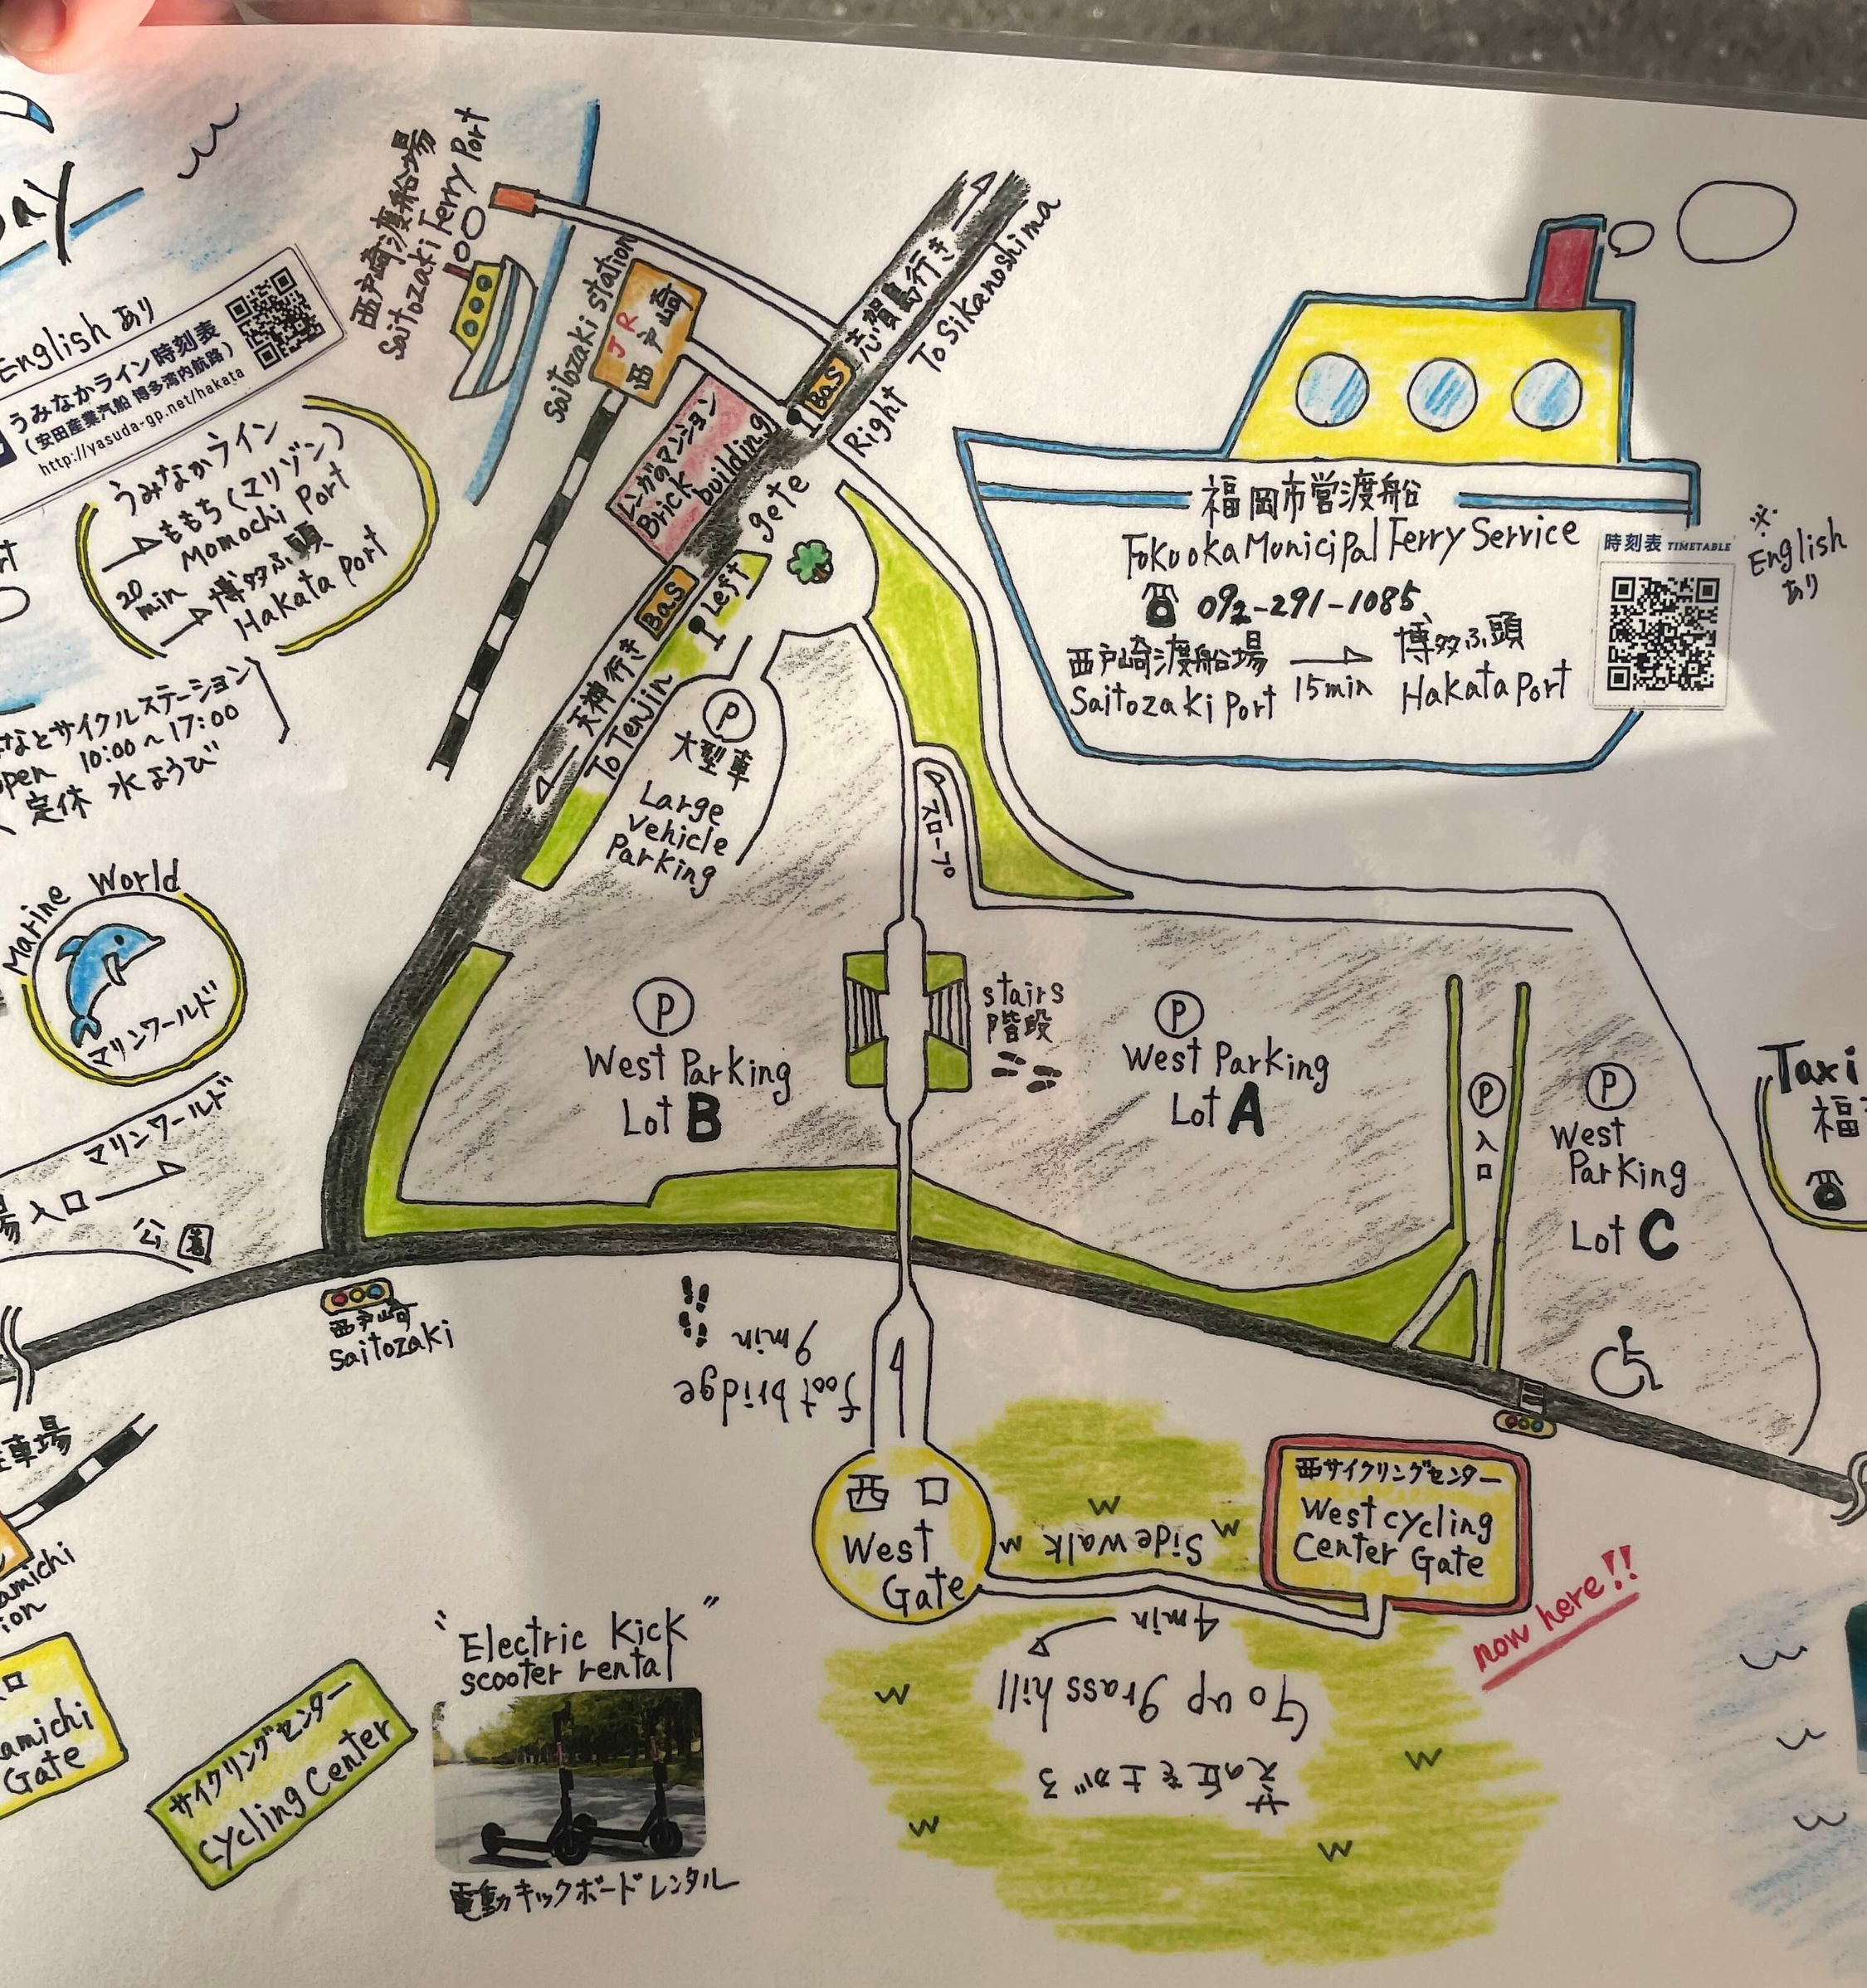 English あり
うみなかライン時刻表
(安田産業汽船 博多湾内航路)
http://yasuda-gp.net/hakata
うみなかライン
→ももち(マリゾン)
Momochi Port
20
min
→博多ふ頭
Hakata Port
なとサイクルステーション
open 10:00~17:00
定休 水ようび
西戸崎渡船場
Saitozaki Ferry Port
Saitozaki station
JR
西戸崎
レンガのマンション
Brick
building
BaS
志賀島行き
To Sikanoshima
Right
gete
BaS
Left
←天神行き
To Tenjin
P
大型車
Large
vehicle
Parking
福岡市営渡船
FokuokaMunicipal Ferry Service
092-291-1085
西戸崎渡船場 → 博多ふ頭
Saitozaki Port 15min Hakata Port
時刻表 TIMETABLE
※
English
あり
Marine World
マリンワールド
マリンワールド
入口→
公園
スロープ
stairs
階段
P
West Parking
Lot B
P
West Parking
Lot A
P
入口
P
West
Parking
Lot C
Taxi
福
西戸崎
Saitozaki
9min
foot bridge
西口
West
Gate
Sidewalk
西サイクリングセンター
West cycling
Center Gate
now here!!
4min
Go up grass hill
芝の丘を上がる
"Electric kick"
scooter rental
電動キックボードレンタル
サイクリングセンター
cycling Center
車場
amichi
ion
口
amichi
Gate